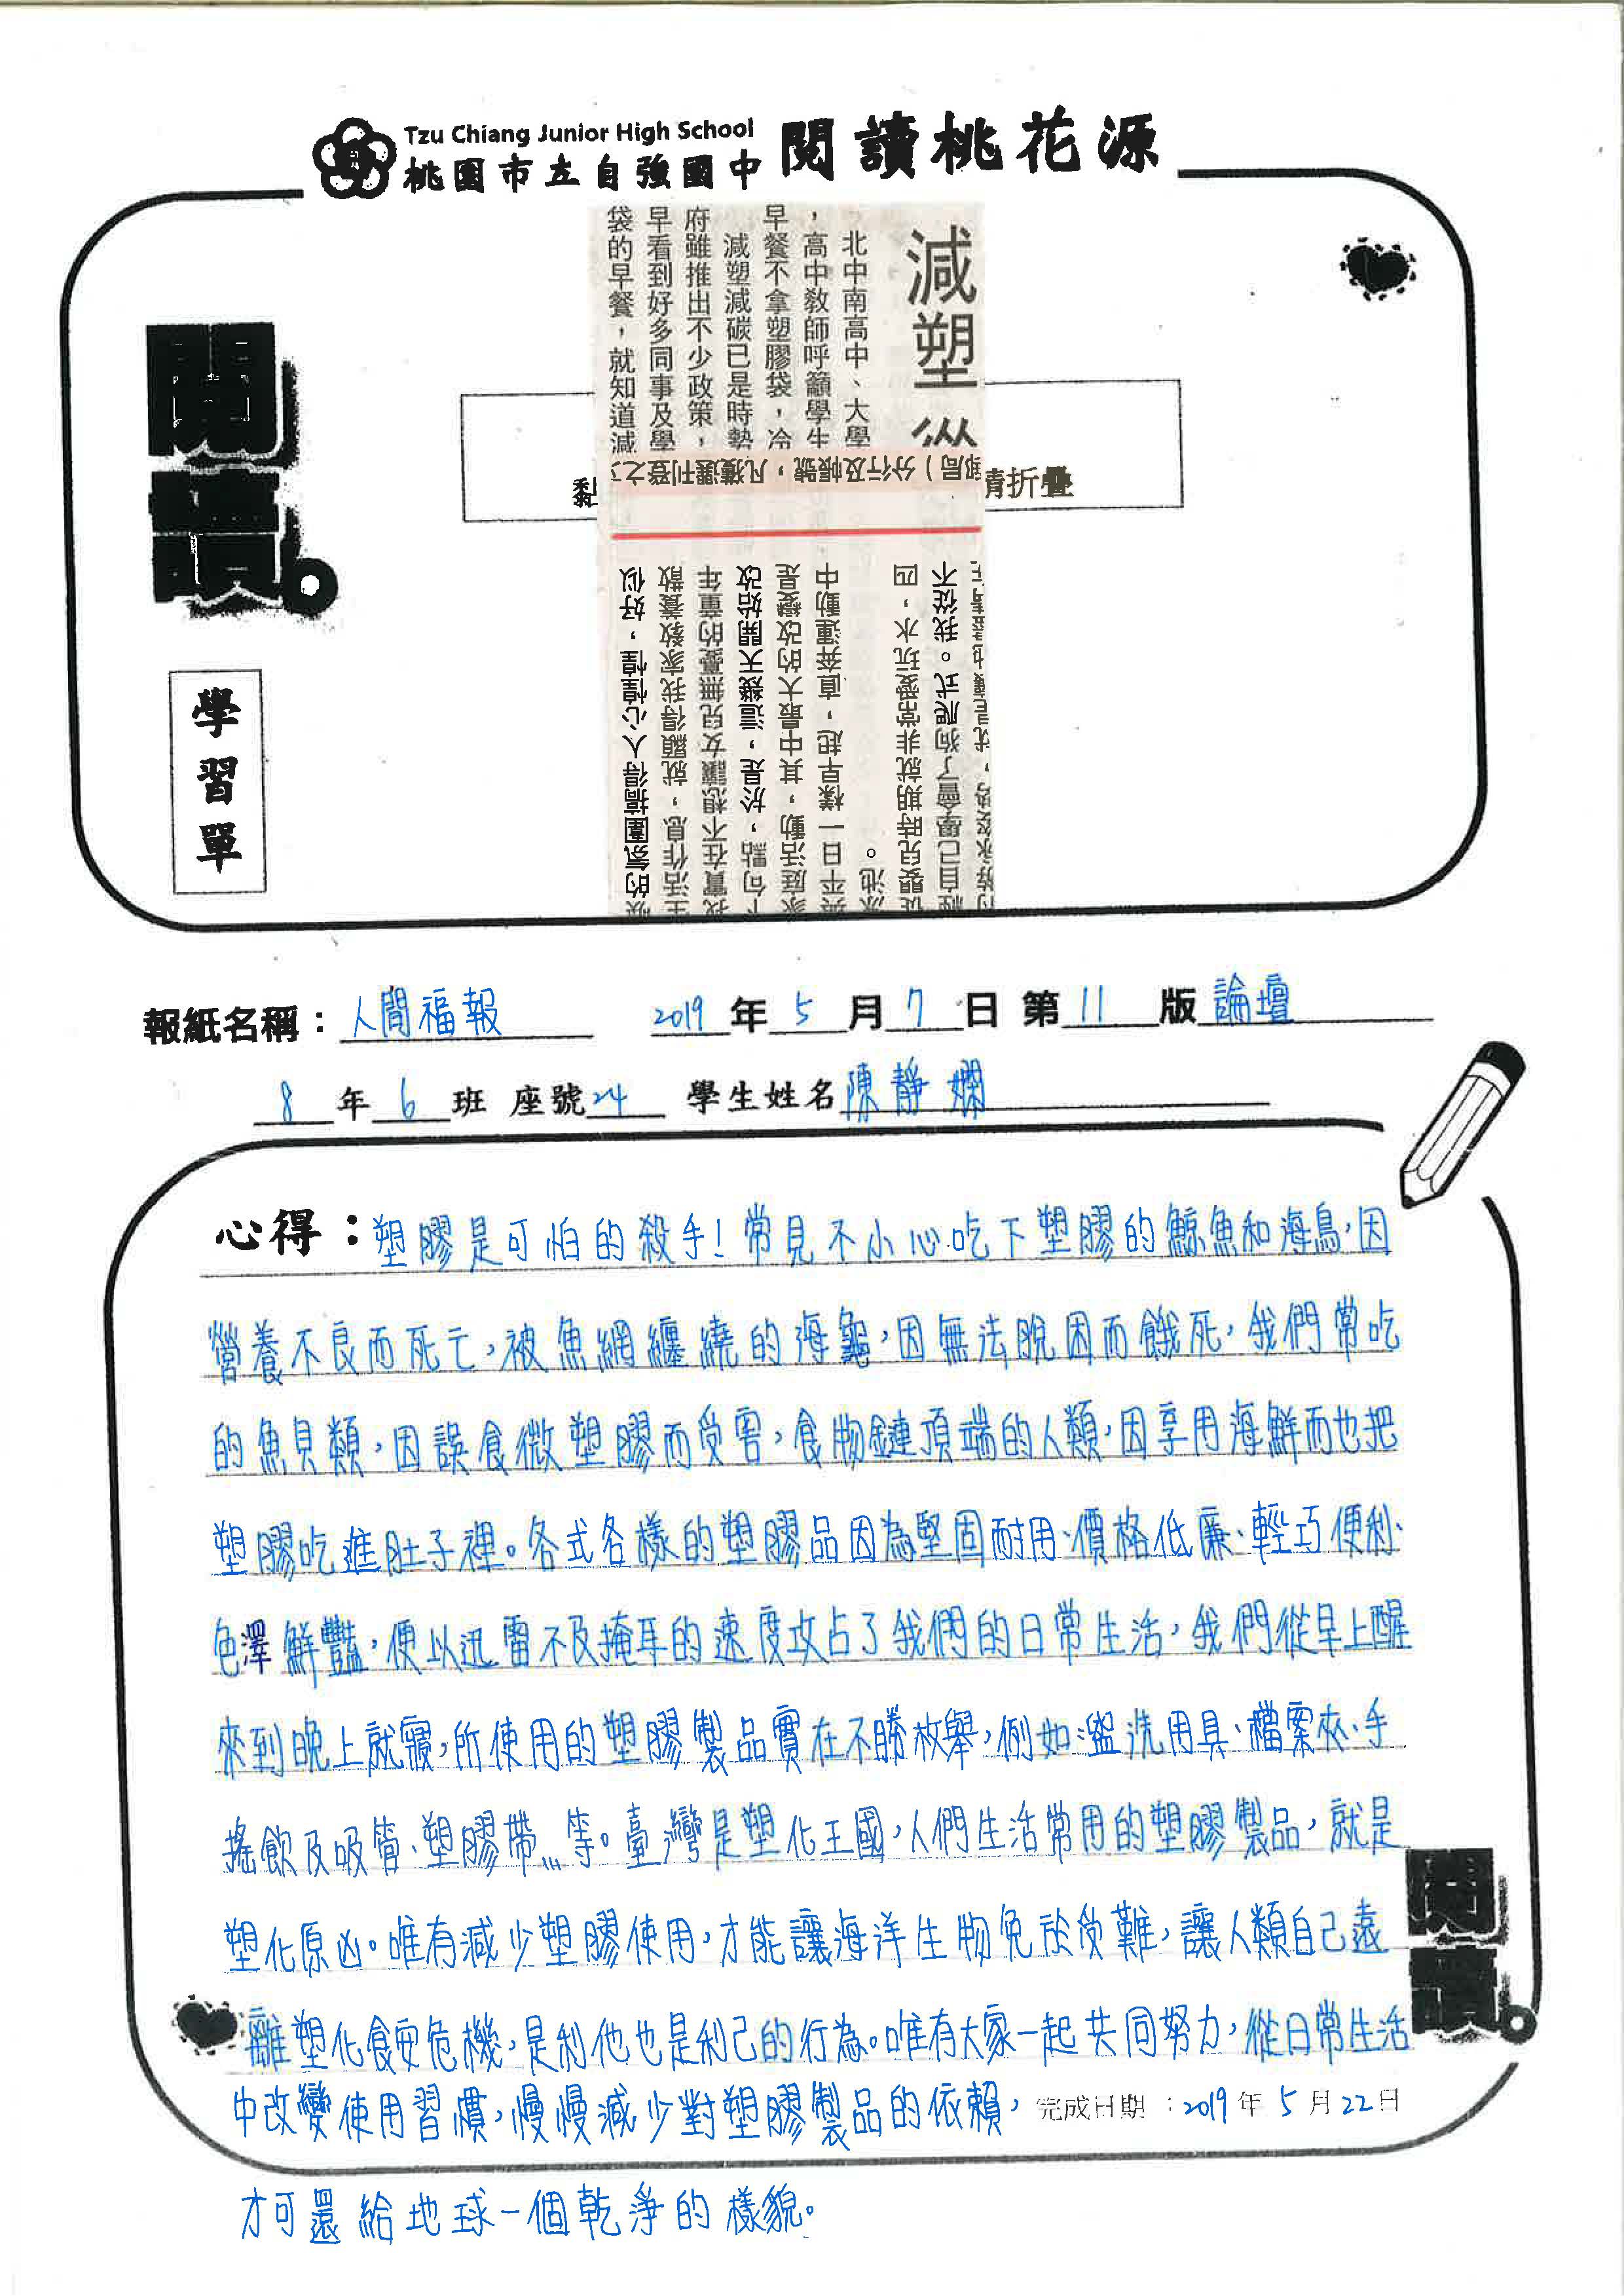 Tzu Chiang Junior High School
桃園市立自強國中 閱讀桃花源
閱讀。
學習單
減塑 從
北中南高中、大學
，高中教師呼籲學生
早餐不拿塑膠袋，冷
減塑減碳已是時勢
府雖推出不少政策，
早看到好多同事及學
袋的早餐，就知道減
局）分行及帳號，凡獲選刊登之
黏
請折疊
不從我。式爬狗了會學己自
四，水玩愛常非就期時兒嬰從
泳池。
中動運奔直，起早樣一日平
是變改的大最中其，動活庭家
改始開天幾這，是於，點句
年童的憂無兒女讓想不在實我
散養教家我得顧就，息作活生
似好，惶惶心人得搞圍氛的
報紙名稱：人間福報 2019年5月7日 第11版論壇
8年6班 座號24 學生姓名陳靜嫻
心得：塑膠是可怕的殺手！常見不小心吃下塑膠的鯨魚和海鳥，因
營養不良而死亡，被魚網纏繞的海龜，因無法脫困而餓死，我們常吃
的魚貝類，因誤食微塑膠而受害，食物鏈頂端的人類，因享用海鮮而也把
塑膠吃進肚子裡。各式各樣的塑膠品因為堅固耐用、價格低廉、輕巧便利、
色澤鮮豔，便以迅雷不及掩耳的速度攻占了我們的日常生活，我們從早上醒
來到晚上就寢，所使用的塑膠製品實在不勝枚舉，例如：盥洗用具、檔案夾、手
搖飲及吸管、塑膠帶…等。臺灣是塑化王國，人們生活常用的塑膠製品，就是
塑化原凶。唯有減少塑膠使用，才能讓海洋生物免於受難，讓人類自己遠
離塑化食安危機，是利他也是利己的行為。唯有大家一起共同努力，從日常生活
中改變使用習慣，慢慢減少對塑膠製品的依賴，
完成日期：2019年5月22日
才可還給地球一個乾淨的樣貌。
閱讀。